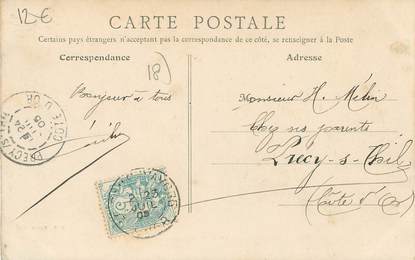 12€
CARTE POSTALE
Certains pays étrangers n'acceptant pas la correspondance de ce côté, se renseigner à la Poste
Correspondance
Adresse
18)
Bonjour à tous
Monsieur H. Mélin
Chez ses parents
Précy-s-Thil
(Côte d'Or)
PRÉCY-S
CÔTE D'OR
24
05
23
JUIL
05